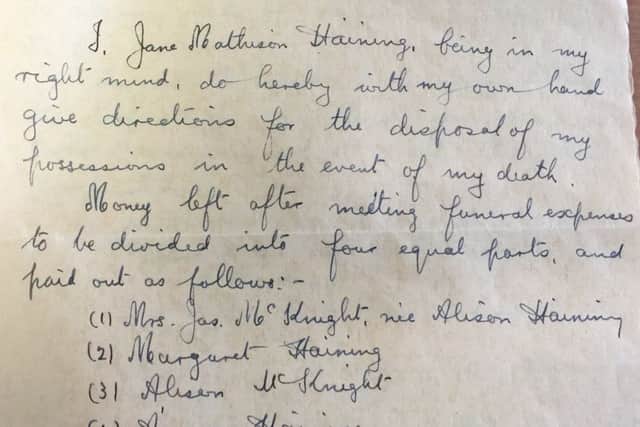 I, Jane Mathison Haining, being in my
right mind, do hereby with my own hand
give directions for the disposal of my
possessions in the event of my death.
Money left after meeting funeral expenses
to be divided into four equal parts, and
paid out as follows:-
(1) Mrs. Jas. McKnight, née Alison Haining
(2) Margaret Haining
(3) Alison McKnight